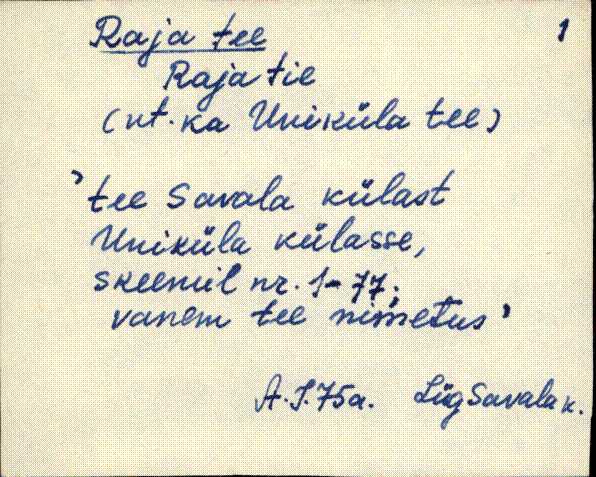 Raja tee 1
Raja tie
(vt. ka Uniküla tee)
'tee Savala külast
Uniküla külasse,
skeemil nr. 1-77;
vanem tee nimetus'
A.J.75a. Lüg Savala k.